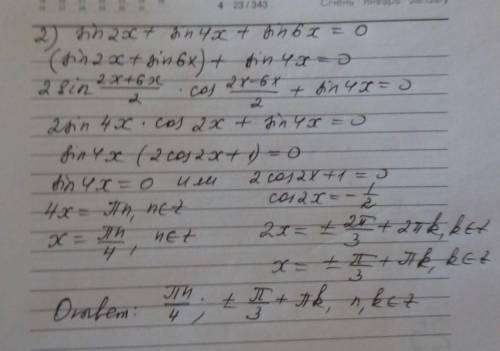 4 23/343 Січень Январь January
2) sin2x + sin4x + sin6x = 0
(sin2x + sin6x) + sin4x = 0
2sin (2x+6x)/2 · cos (2x-6x)/2 + sin4x = 0
2sin4x · cos2x + sin4x = 0
sin4x (2cos2x+1) = 0
sin4x = 0 или 2cos2x+1 = 0
4x = πn, n∈z cos2x = -1/2
x = πn/4, n∈z 2x = ± 2π/3 + 2πk, k∈z
x = ± π/3 + πk, k∈z
Ответ: πn/4; ± π/3 + πk, n,k∈z